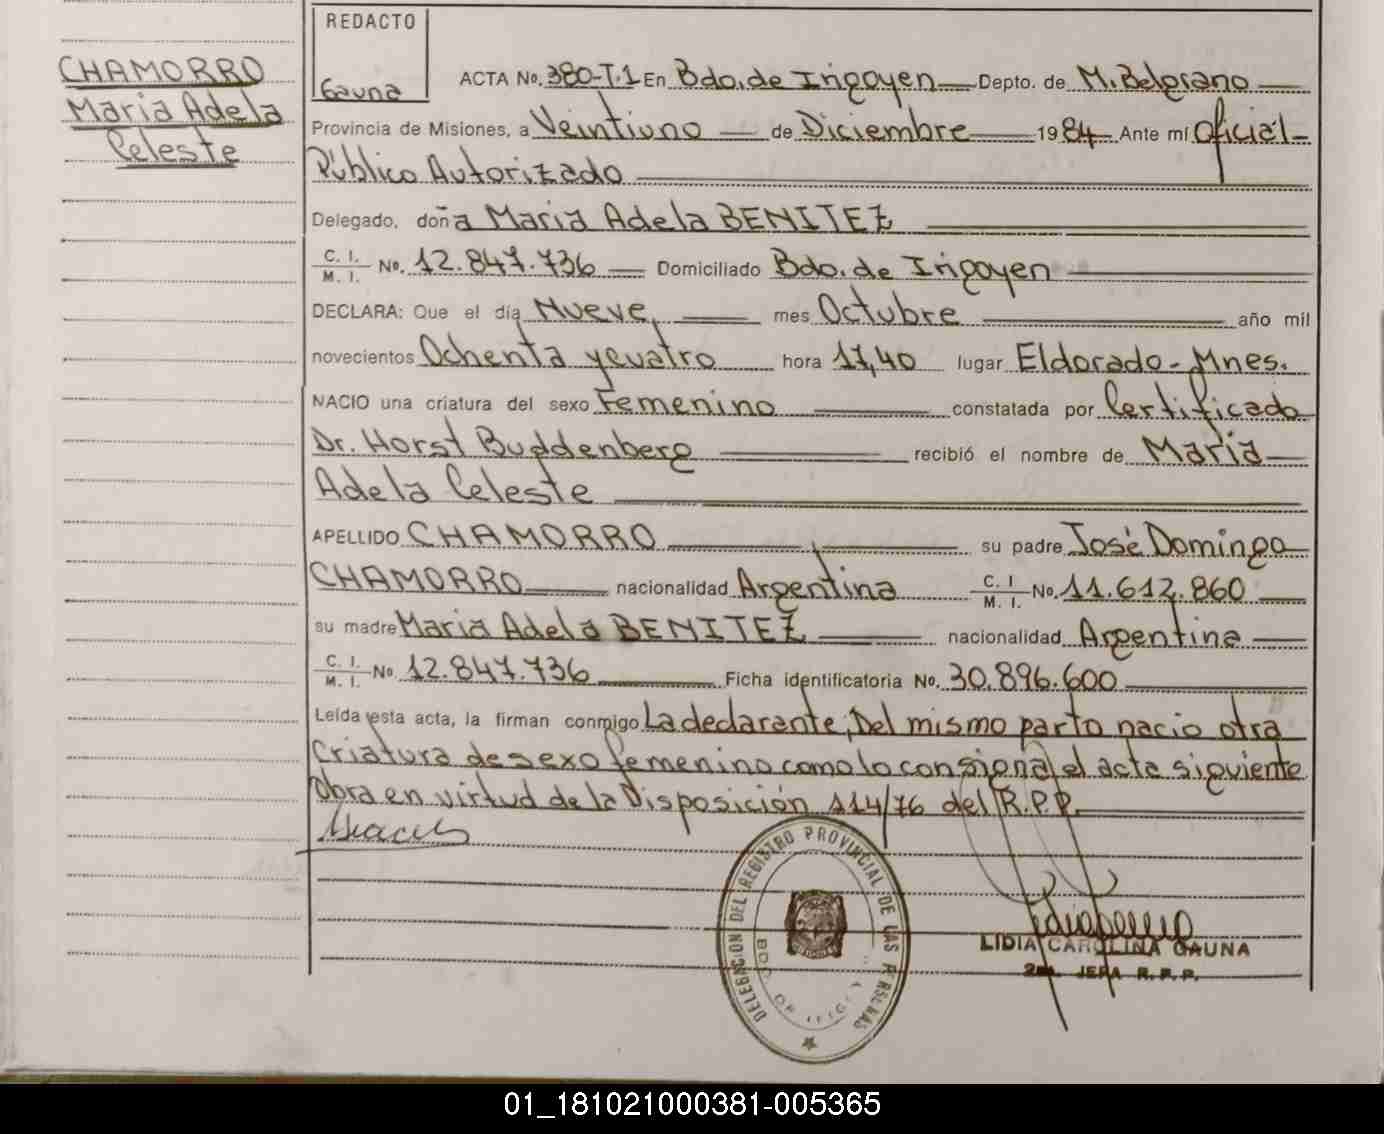 REDACTO
Gauna
CHAMORRO
Maria Adela
Celeste
ACTA No. 380-T.1 En Bdo. de Irigoyen Depto. de M. Belgrano
Provincia de Misiones, a Veintiuno de Diciembre 1984 Ante mí Oficial
Público Autorizado
Delegado, doña Maria Adela BENITEZ
C. I.
M. I. No. 12.847.736 Domiciliado Bdo. de Irigoyen
DECLARA: Que el día Nueve, mes Octubre año mil
novecientos Ochenta y cuatro hora 17,40 lugar Eldorado - Mnes.
NACIO una criatura del sexo Femenino constatada por Certificado
Dr. Horst Buddenberg recibió el nombre de Maria
Adela Celeste
APELLIDO CHAMORRO, su padre José Domingo
CHAMORRO nacionalidad Argentina C. I.
M. I. No. 11.612.860
su madre Maria Adela BENITEZ nacionalidad Argentina
C. I.
M. I. No 12.847.736 Ficha identificatoria No. 30.896.600
Leída esta acta, la firman conmigo La declarante, Del mismo parto nacio otra
Criatura de sexo femenino como lo consigna el acta siguiente
Obra en virtud de la Disposición 114/76 del R.P.P.
DELEGACION DEL REGISTRO PROVINCIAL DE LAS PERSONAS
BDO. DE
LIDIA CAROLINA GAUNA
2da. JEFA R.P.P.
01_181021000381-005365